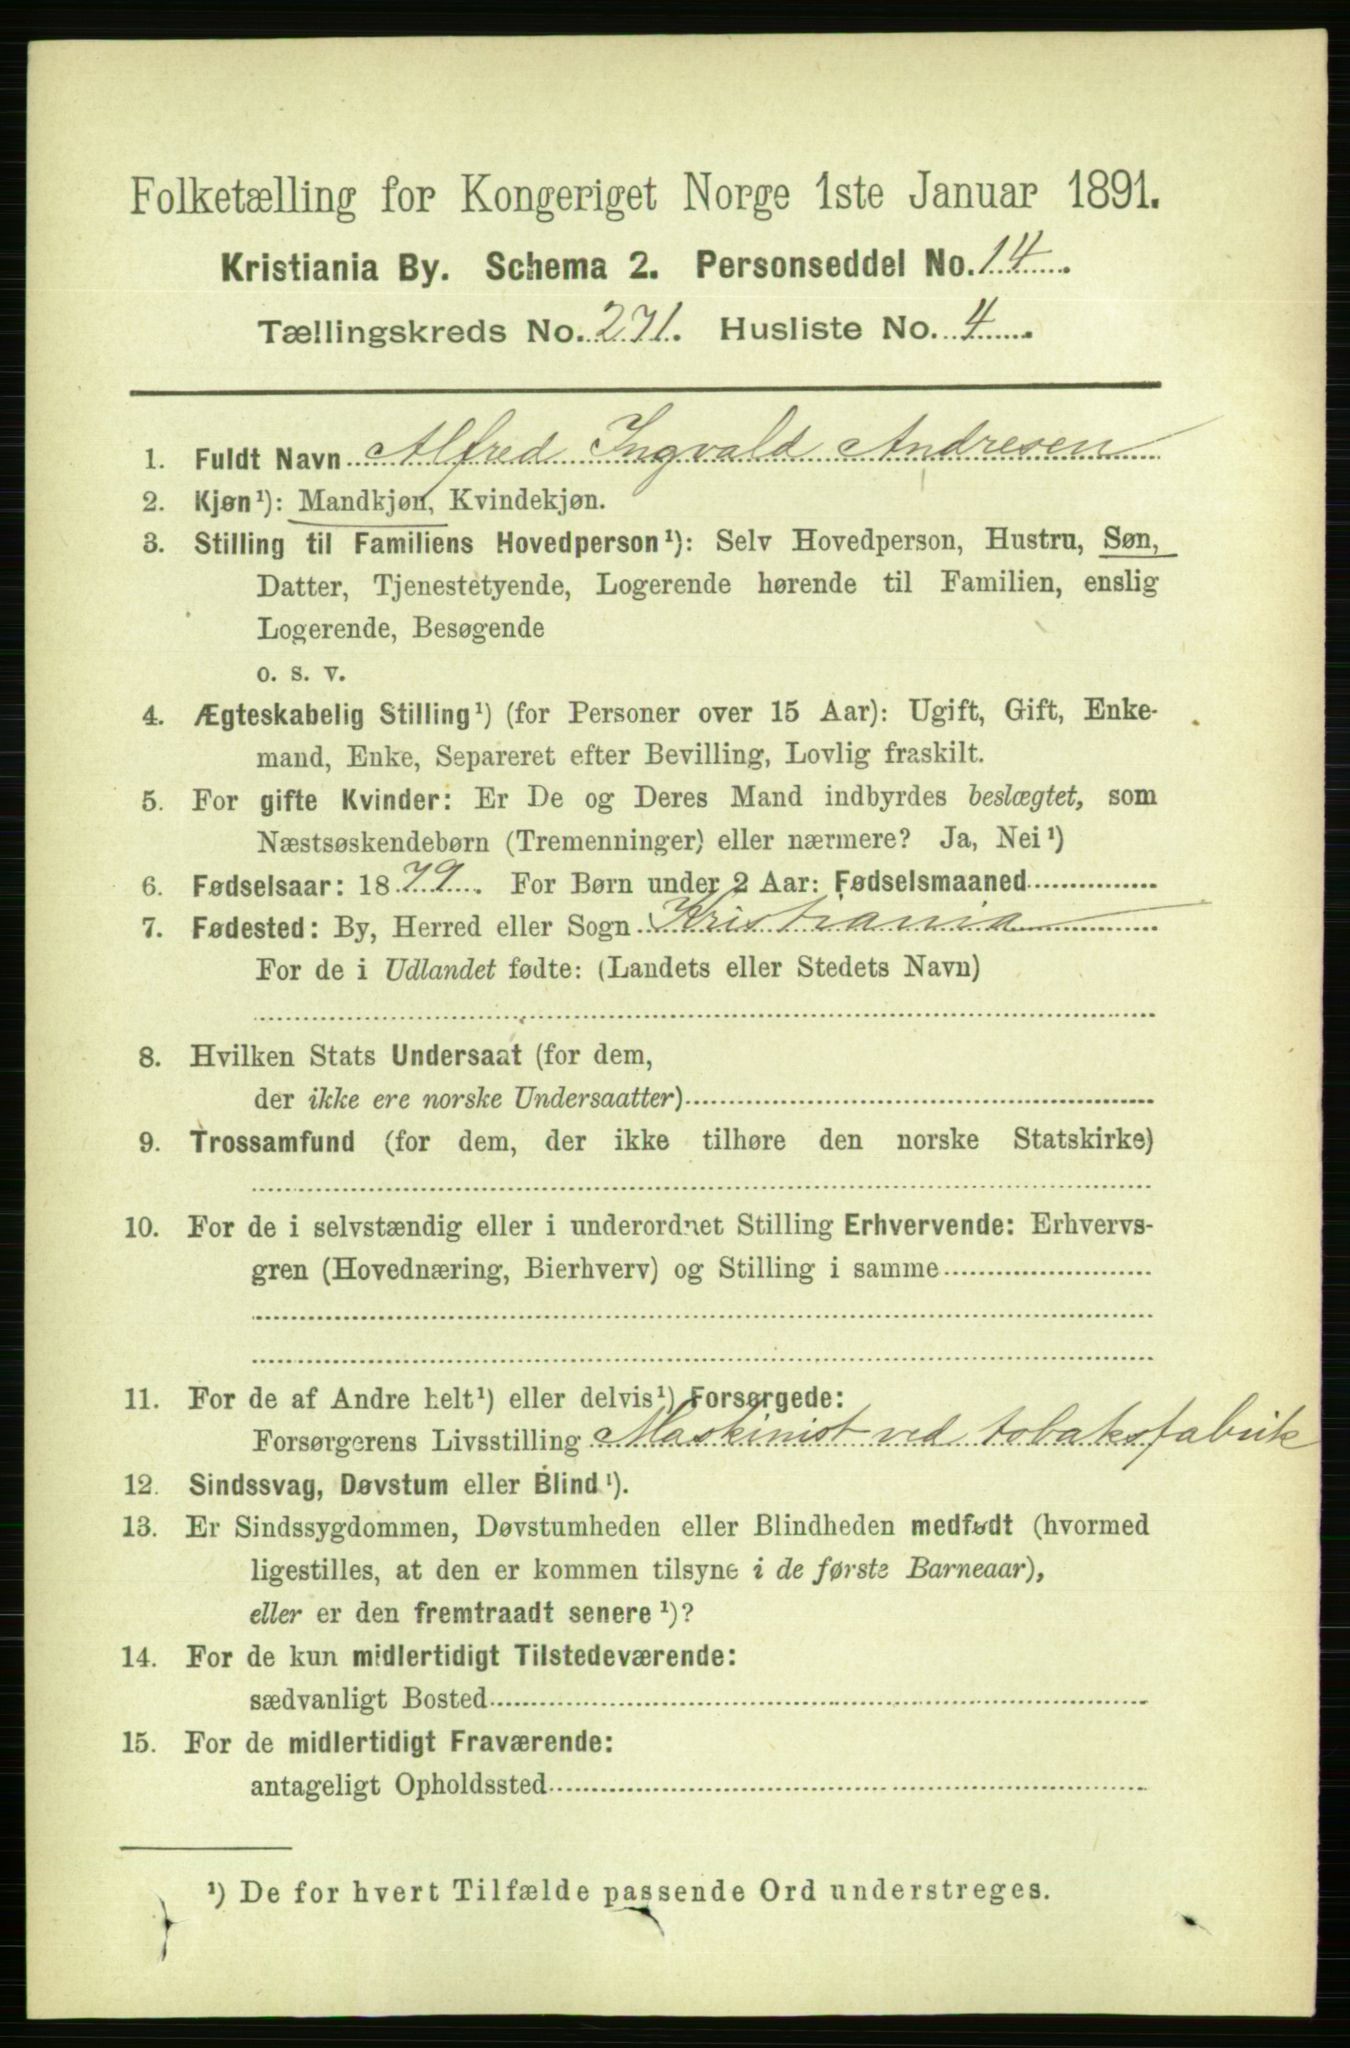 Folketælling for Kongeriget Norge 1ste Januar 1891.
Kristiania By. Schema 2. Personseddel No. 14
Tællingskreds No. 271. Husliste No. 4
1. Fuldt Navn Alfred Ingvald Andresen
2. Kjøn¹): Mandkjøn, Kvindekjøn.
3. Stilling til Familiens Hovedperson¹): Selv Hovedperson, Hustru, Søn,
Datter, Tjenestetyende, Logerende hørende til Familien, enslig
Logerende, Besøgende
o. s. v.
4. Ægteskabelig Stilling¹) (for Personer over 15 Aar): Ugift, Gift, Enke-
mand, Enke, Separeret efter Bevilling, Lovlig fraskilt.
5. For gifte Kvinder: Er De og Deres Mand indbyrdes beslægtet, som
Næstsøskendebørn (Tremenninger) eller nærmere? Ja, Nei¹)
6. Fødselsaar: 1879. For Børn under 2 Aar: Fødselsmaaned
7. Fødested: By, Herred eller Sogn Kristiania
For de i Udlandet fødte: (Landets eller Stedets Navn)
8. Hvilken Stats Undersaat (for dem,
der ikke ere norske Undersaatter)
9. Trossamfund (for dem, der ikke tilhøre den norske Statskirke)
10. For de i selvstændig eller i underordnet Stilling Erhvervende: Erhvervs-
gren (Hovednæring, Bierhverv) og Stilling i samme
11. For de af Andre helt¹) eller delvis¹) Forsørgede:
Forsørgerens Livsstilling Maskinist ved tobaksfabrik
12. Sindssvag, Døvstum eller Blind¹).
13. Er Sindssygdommen, Døvstumheden eller Blindheden medfødt (hvormed
ligestilles, at den er kommen tilsyne i de første Barneaar),
eller er den fremtraadt senere¹)?
14. For de kun midlertidigt Tilstedeværende:
sædvanligt Bosted
15. For de midlertidigt Fraværende:
antageligt Opholdssted
¹) De for hvert Tilfælde passende Ord understreges.